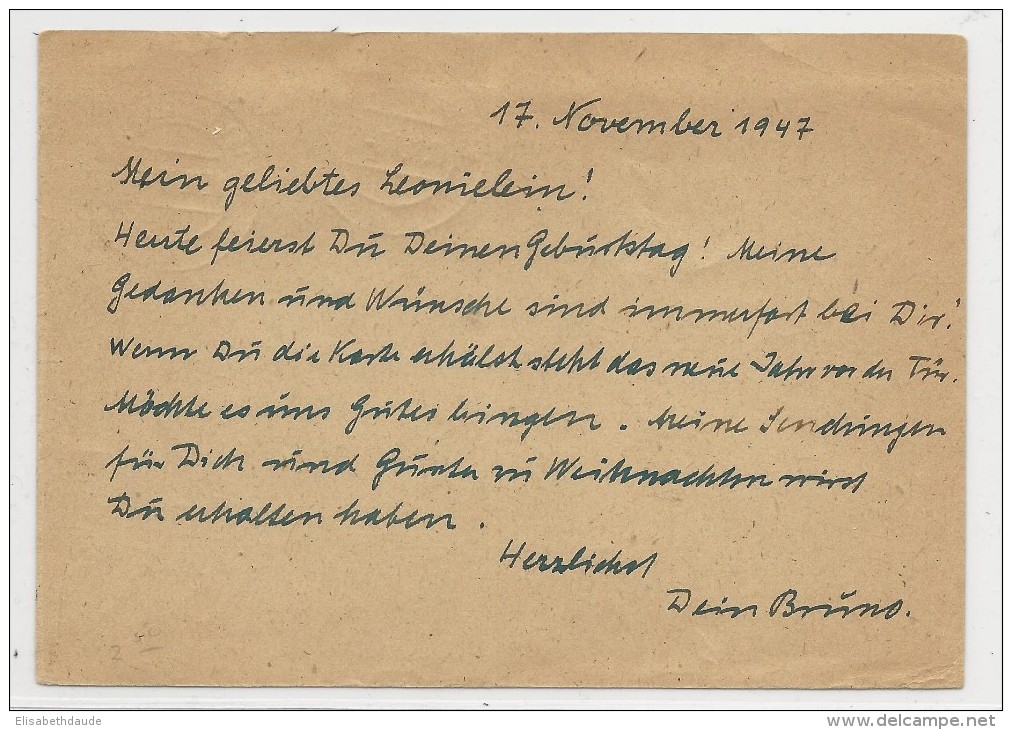 17. November 1947
Mein geliebtes Leonielein!
Heute feierst Du Deinen Geburtstag! Meine
Gedanken und Wünsche sind immerfort bei Dir!
Wenn Du die Karte erhälst steht das neue Jahr vor der Tür.
Möchte es uns Gutes bringen. Meine Sendungen
für Dich und Günter zu Weihnachten wirst
Du erhalten haben.
Herzlichst
Dein Bruno.
2 50
Elisabethdaude
www.delcampe.net